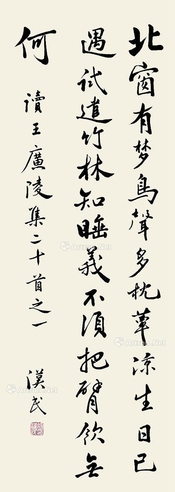 北窗有梦鳥聲多枕簟凉生日已
過試造竹林知睡義不須把臂飲無
何
讀王廣陵集二十首之一
漢民